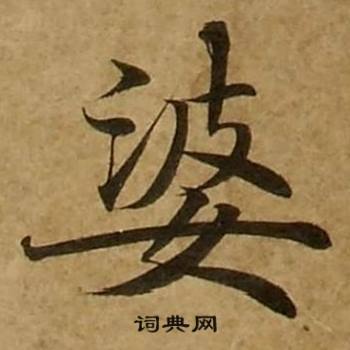 婆
词典网